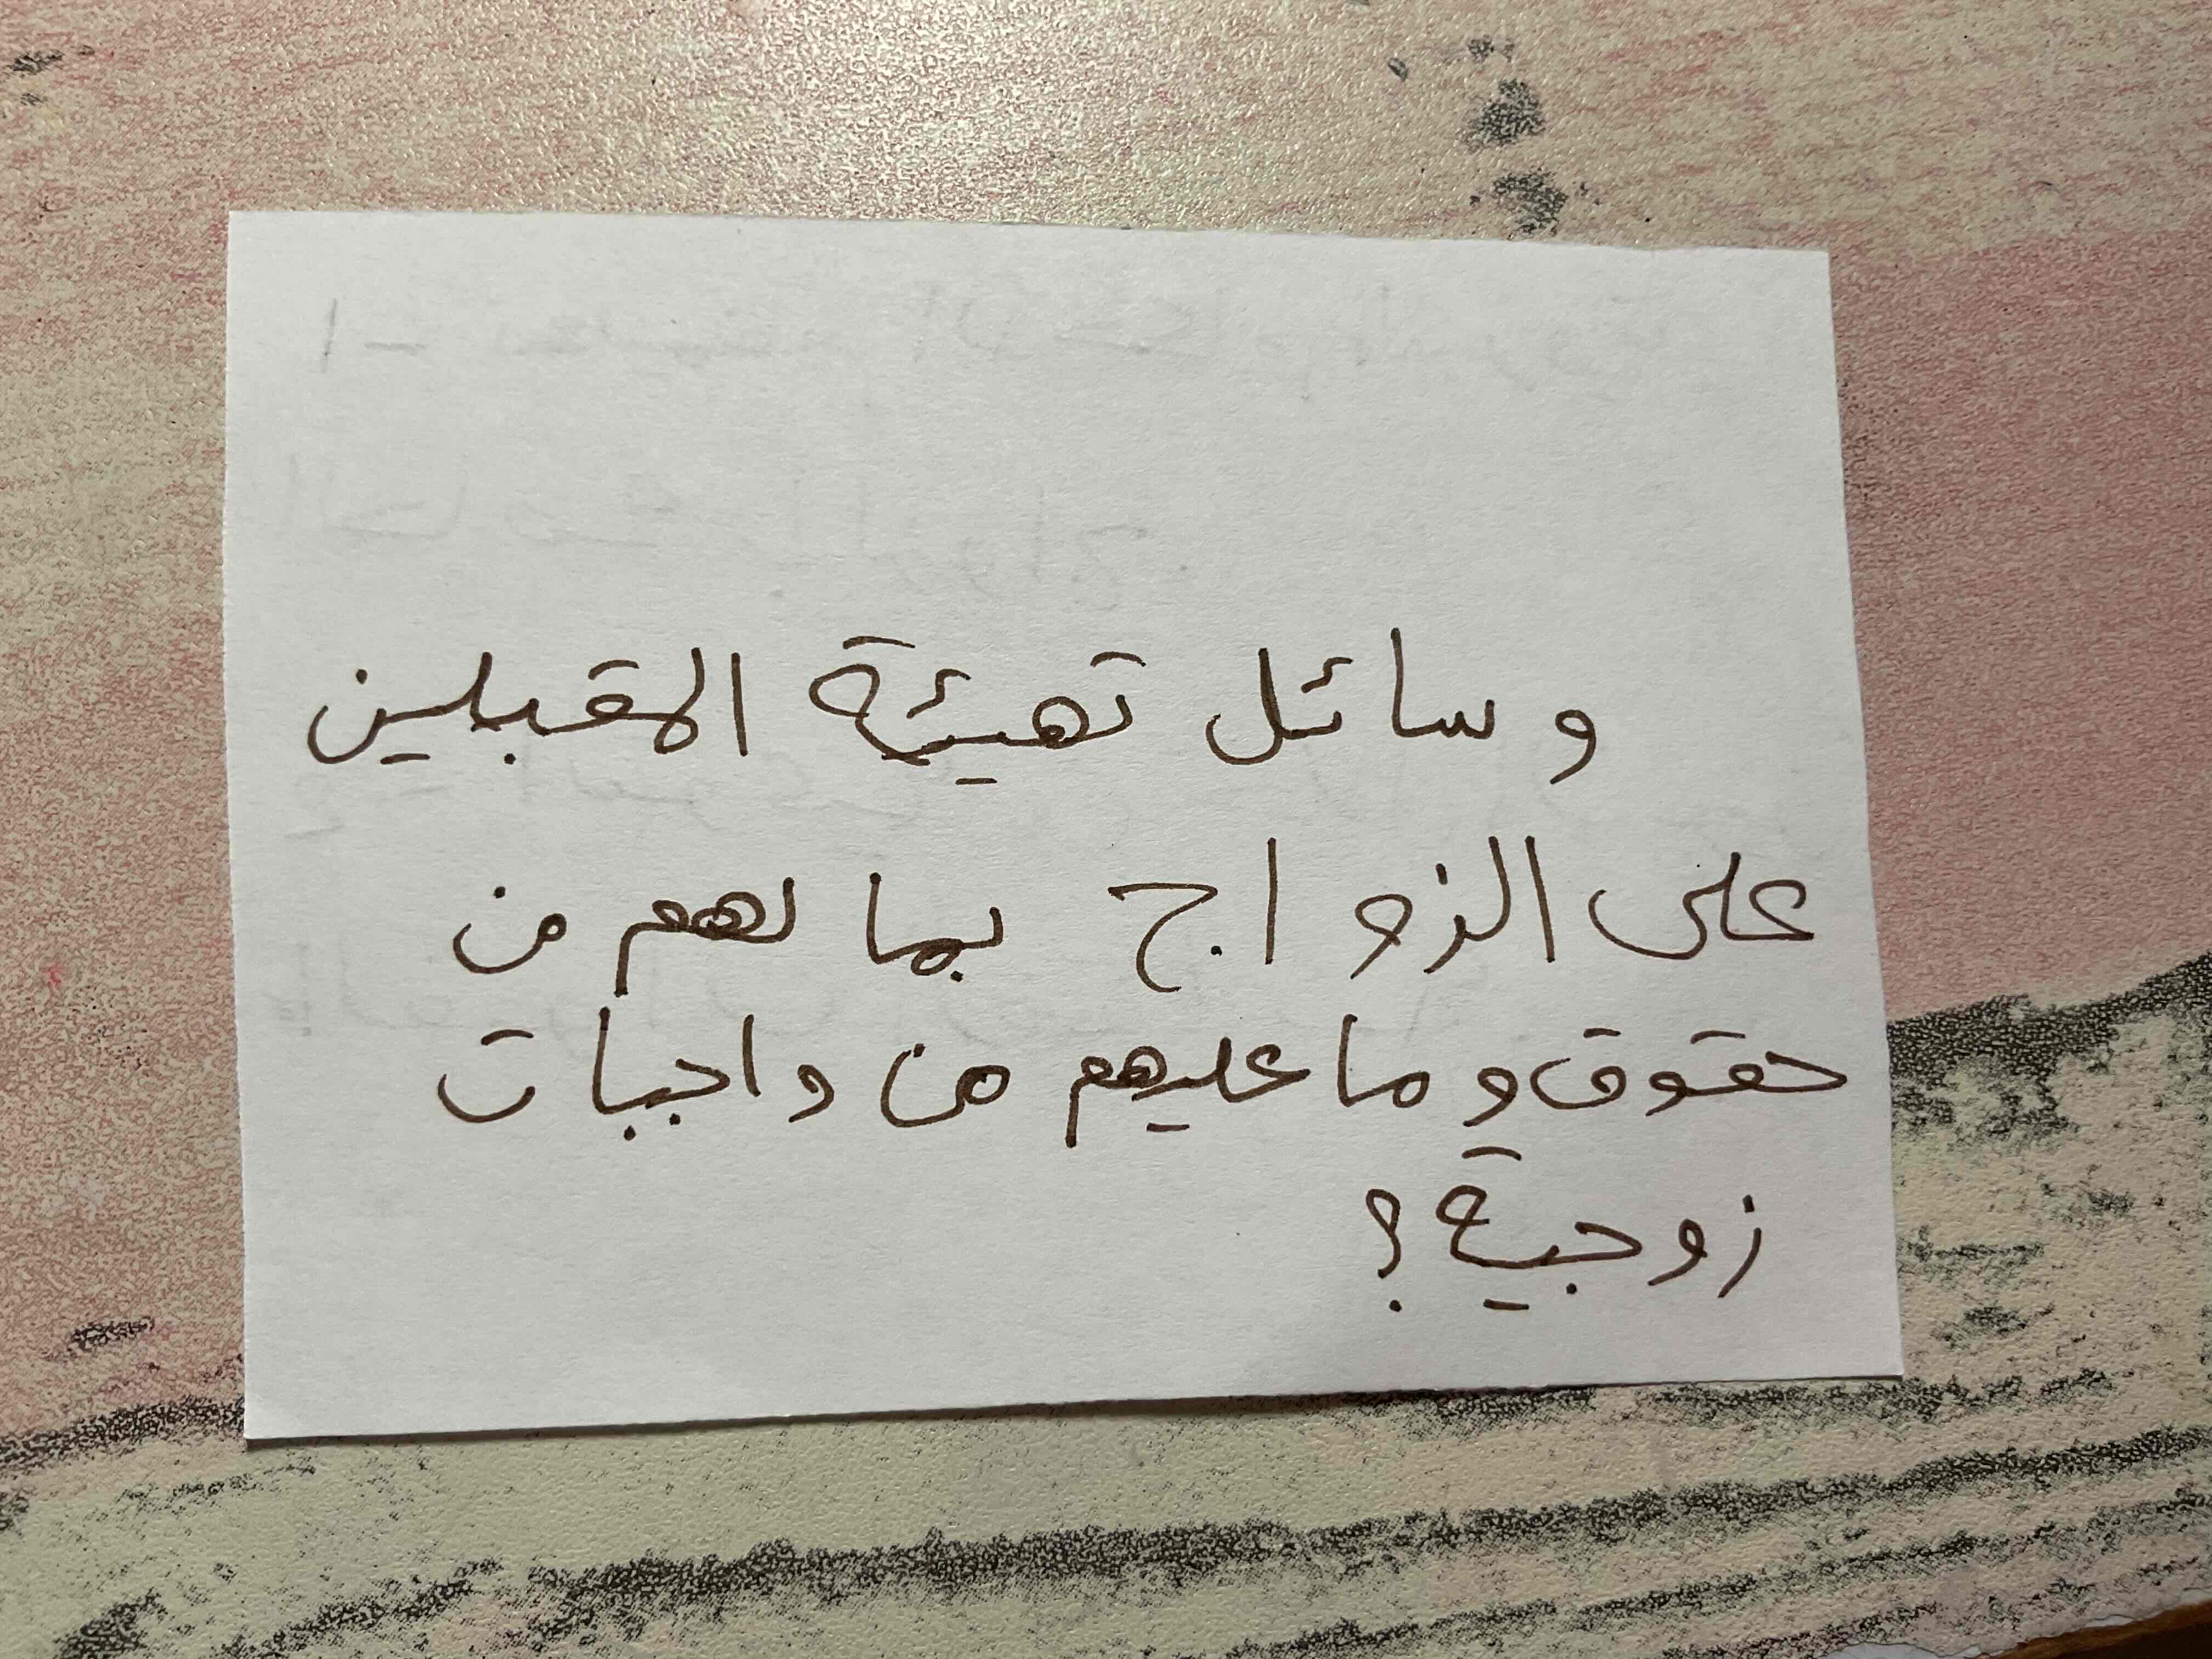 وسائل تهيئة المقبلين
على الزواج بما لهم من
حقوق وما عليهم من واجبات
زوجية؟